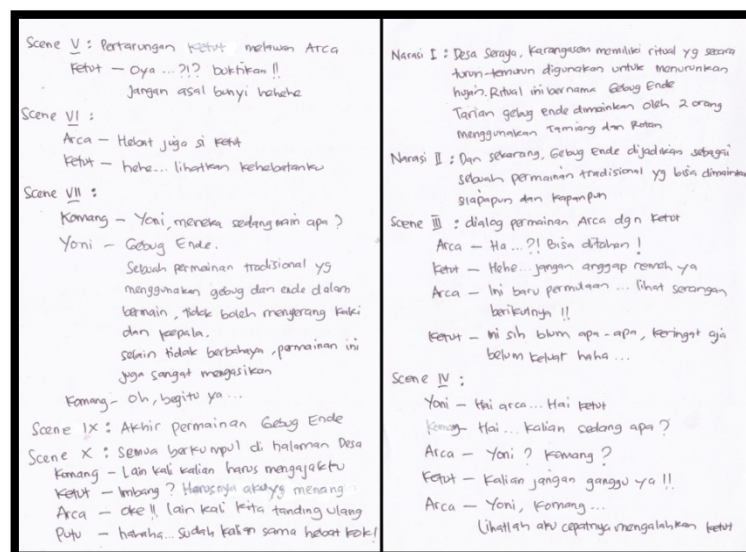 Scene V : Pertarungan Ketut melawan Arca
Ketut — Oya ...?!? buktikan !!
Jangan asal bunyi hehehe
Scene VI :
Arca — Hebat juga si Ketut
Ketut — hehe... lihatkan kehebatanku
Scene VII :
Komang — Yoni, mereka sedang main apa ?
Yoni — Gebug Ende.
Sebuah permainan tradisional yg
menggunakan gebug dan ende dalam
bermain, tidak boleh menyerang kaki
dan kepala.
selain tidak berbahaya, permainan ini
juga sangat mengasikan
Komang — Oh, begitu ya ...
Scene IX : Akhir permainan Gebug Ende
Scene X : Semua berkumpul di halaman Desa
Komang — Lain kali kalian harus mengajakku
Ketut — Imbang ? Harusnya aku yg menang
Arca — oke !! lain kali kita tanding ulang
Putu — hahaha... sudah kalian sama hebat kok!
Narasi I : Desa Seraya, Karangasem memiliki ritual yg secara
turun-temurun digunakan untuk menurunkan
hujan. Ritual ini bernama Gebug Ende
Tarian gebug ende dimainkan oleh 2 orang
menggunakan Tamiang dan Rotan
Narasi II : Dan sekarang, Gebug Ende dijadikan sebagai
sebuah permainan tradisional yg bisa dimainkan
siapapun dan kapanpun
Scene III : dialog permainan Arca dgn Ketut
Arca — Ha ...?! Bisa ditahan !
Ketut — Hehe... jangan anggap remeh ya
Arca — Ini baru permulaan ... lihat serangan
berikutnya !!
Ketut — Ini sih blum apa-apa, keringat aja
belum keluar haha ...
Scene IV :
Yoni — Hai arca... Hai ketut
Komang — Hai ... kalian sedang apa ?
Arca — Yoni ? Komang ?
Ketut — Kalian jangan ganggu ya !!
Arca — Yoni, Komang ...
Lihatlah aku cepatnya mengalahkan ketut